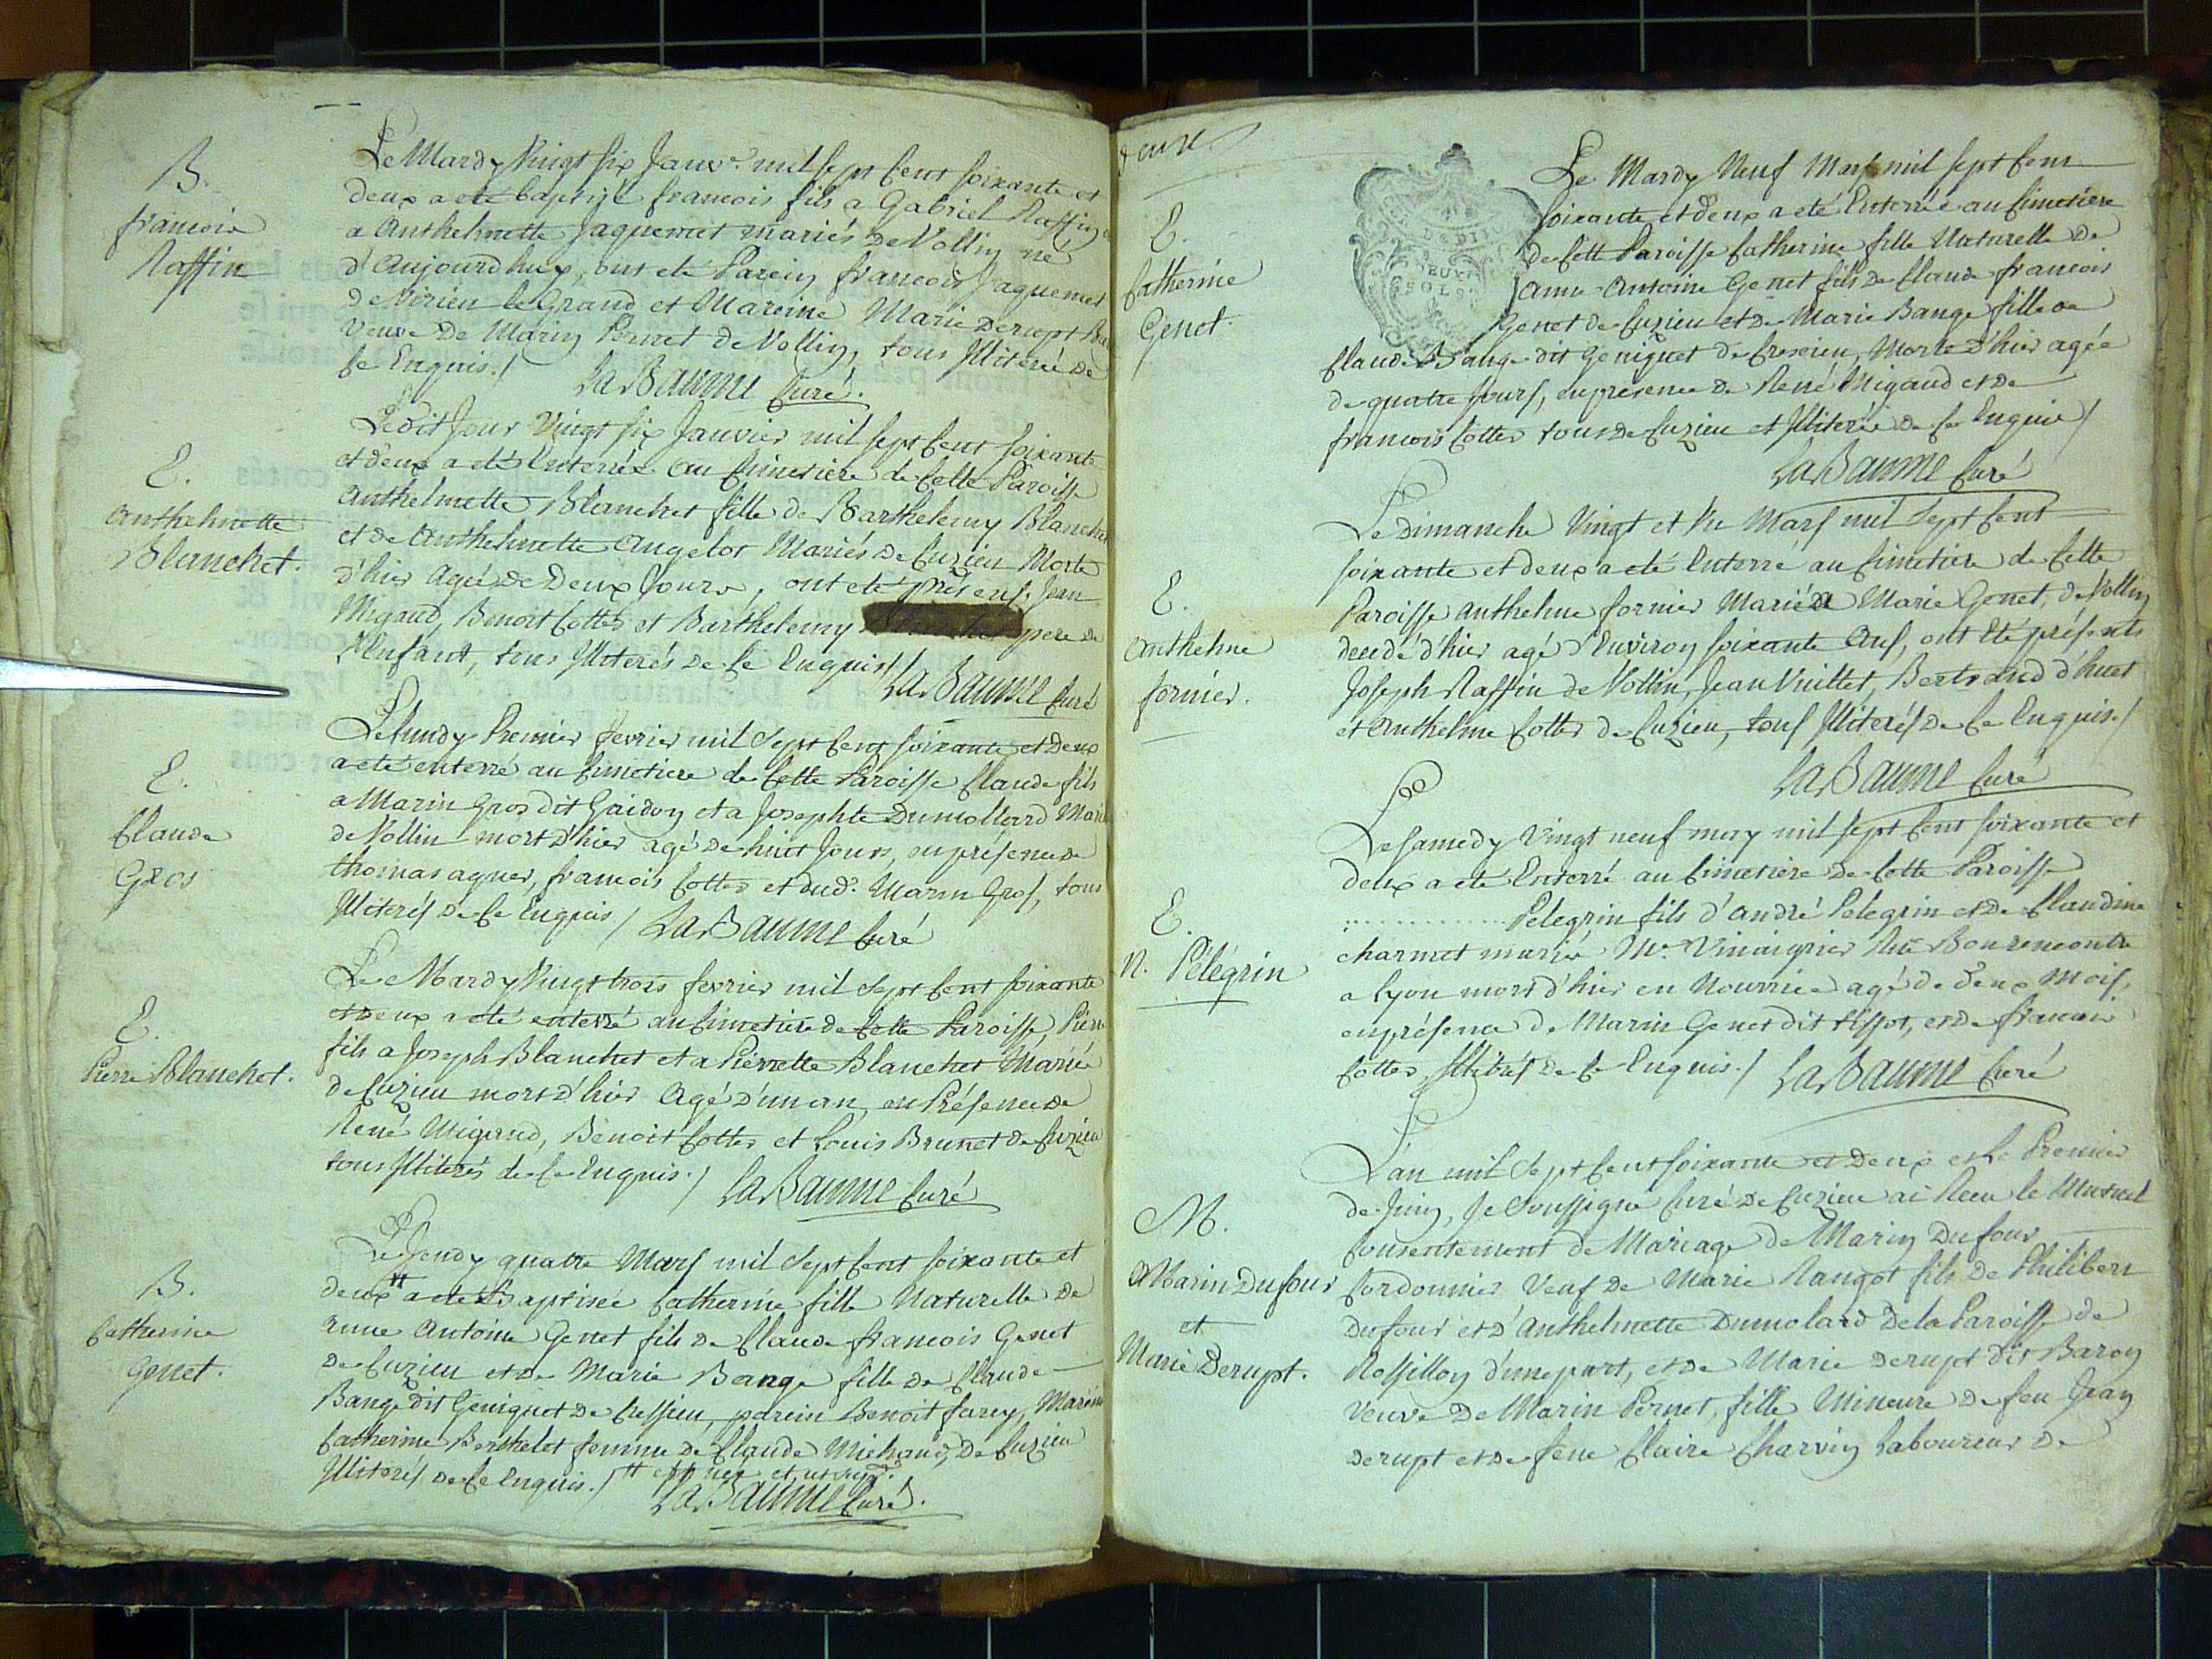 B.
francois
Raffin
Le Mardy Vingt six Janv.r mil sept cent soixante et
deux a eté baptisé francois fils a Gabriel Raffin
a Anthelmette Jaquemet mariés de Vollin né
d'aujourdhuy, ont eté Parein francois Jaquemet
de Virieu le Grand et Mareine Marie Derupt
veuve de Marin Pernet de Vollin, tous Illiterés de
ce Enquis./
LaBaume Curé.
E.
Anthelmette
Blanchet.
Ledit Jour Vingt six Janvier mil sept cent soixante
et deux a eté Enterrée au Cimetiere de Cette Paroisse
Anthelmette Blanchet fille de Barthelemy Blanchet
et de Anthelmette Angelot Mariés de Cuzieu Morte
d'hier Agée de Deux Jours, ont eté présens Jean
Migaud, Benoit Cottes et Barthelemy pere de
l'Enfant, tous Illiterés de Ce Enquis/
LaBaume Curé
E.
Claude
Gros
Le lundy Premier fevrier mil sept Cent soixante et deux
a eté enterré au Cimetiere de Cette Paroisse Claude fils
a Marin Gros dit Gaidon et a Josephte Dumollard
de Vollin mort d'hier agé de huit Jours, en présence de
thomas aguer, francois Cottes et dud.t Marin Gros, tous
Illiterés de Ce Enquis / LaBaume Curé
E.
Pierre Blanchet.
Le Mardy Vingt trois fevrier mil sept Cent soixante
et deux a eté enterré au Cimetiere de Cette Paroisse, Pierre
fils a Joseph Blanchet et a Pierrette Blanchet Mariés
de Cuzieu mort d'hier Agé d'un an, en Présence de
René Migaud, Benoit Cottes et Louis Brunet de Cuzieu
tous Illiterés de Ce Enquis./ LaBaume Curé
B.
Catherine
Genet.
Le Jeudy quatre Mars mil sept Cent soixante et
deux a eté Baptisée Catherine fille Naturelle de
Anne Antoine Genet fils de Claude francois Genet
de Cuzieu et de Marie Bange fille de Claude
Bange dit Geniquet de Cressieu, parein Benoit farey,
Catherine Berthelet femme de Claude Michaud, de Cuzieu
Illiterés de Ce Enquis./
LaBaume Curé.
deux.
E.
Catherine
Genet.
DEUX
SOLS
Le Mardy Neuf Mars mil sept Cent
soixante et deux a eté Enterrée au Cimetiere
de Cette Paroisse Catherine fille Naturelle de
Anne Antoine Genet fils de Claude francois
Genet de Cuzieu et de Marie Bange fille de
Claude Bange dit Geniquet de Cressieu, Morte d'hier agée
de quatre Jours, en présence de René Migaud et de
francois Cottes tous de Cuzieu et Illiterés de Ce Enquis /
LaBaume Curé
E.
Anthelme
fornier.
Le Dimanche Vingt et Un Mars mil sept Cent
soixante et deux a eté Enterré au Cimetiere de Cette
Paroisse Anthelme fornier Marié a Marie Genet, de Vollin
decedé d'hier agé d'Environ soixante Ans, ont Eté présents
Joseph Raffin de Vollin, Jean Vuillet, Bertrand d'huet
et Anthelme Cottes de Cuzieu, tous Illiterés de Ce Enquis./
LaBaume Curé
E.
N. Pélégrin
Le samedy Vingt neuf may mil sept Cent soixante et
deux a eté Enterré au Cimetiere de Cette Paroisse
............... Pelegrin fils d'andré Pelegrin et de Claudine
charmet mariés M.e Vinaigrier Rue Bourencontre
a Lyon mort d'hier en Nourrice agé de deux Mois,
en présence de Marin Genet dit tissot, et de francois
Cottes, Illiterés de Ce Enquis./ LaBaume Curé
M.
Marin Dufour
et
Marie Derupt.
L'an mil sept Cent soixante et Deux et le Premier
de Juin, Je soussigné Curé de Cuzieu ai Recu le Mutuel
Consentement de Mariage de Marin Dufour
Cordonnier Veuf de Marie Rangot fils de Philibert
Dufour et d'Anthelmette Dumolard de la Paroisse de
Rossillon d'une part, et de Marie Derupt dit Baron
Veuve de Marin Pernet, fille Mineure de feu Jean
Derupt et de feue Claire Charvin Laboureur de